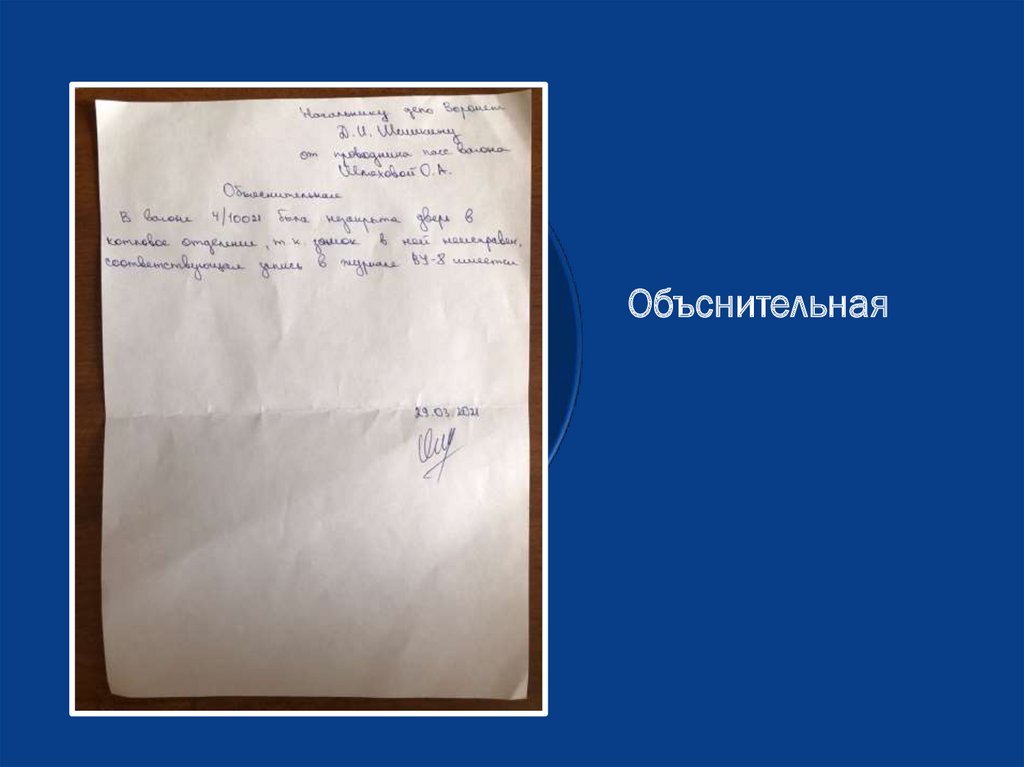 Начальнику депо Воронеж
Д.И. Шишкину
от проводника пасс вагона
Шпаховой О.А.
Объяснительная
В вагоне 4/10021 была незакрыта дверь в
котловое отделение, т.к. замок в ней неисправен,
соответствующая запись в журнале ВУ-8 имеется
29.03.2021
Объснительная